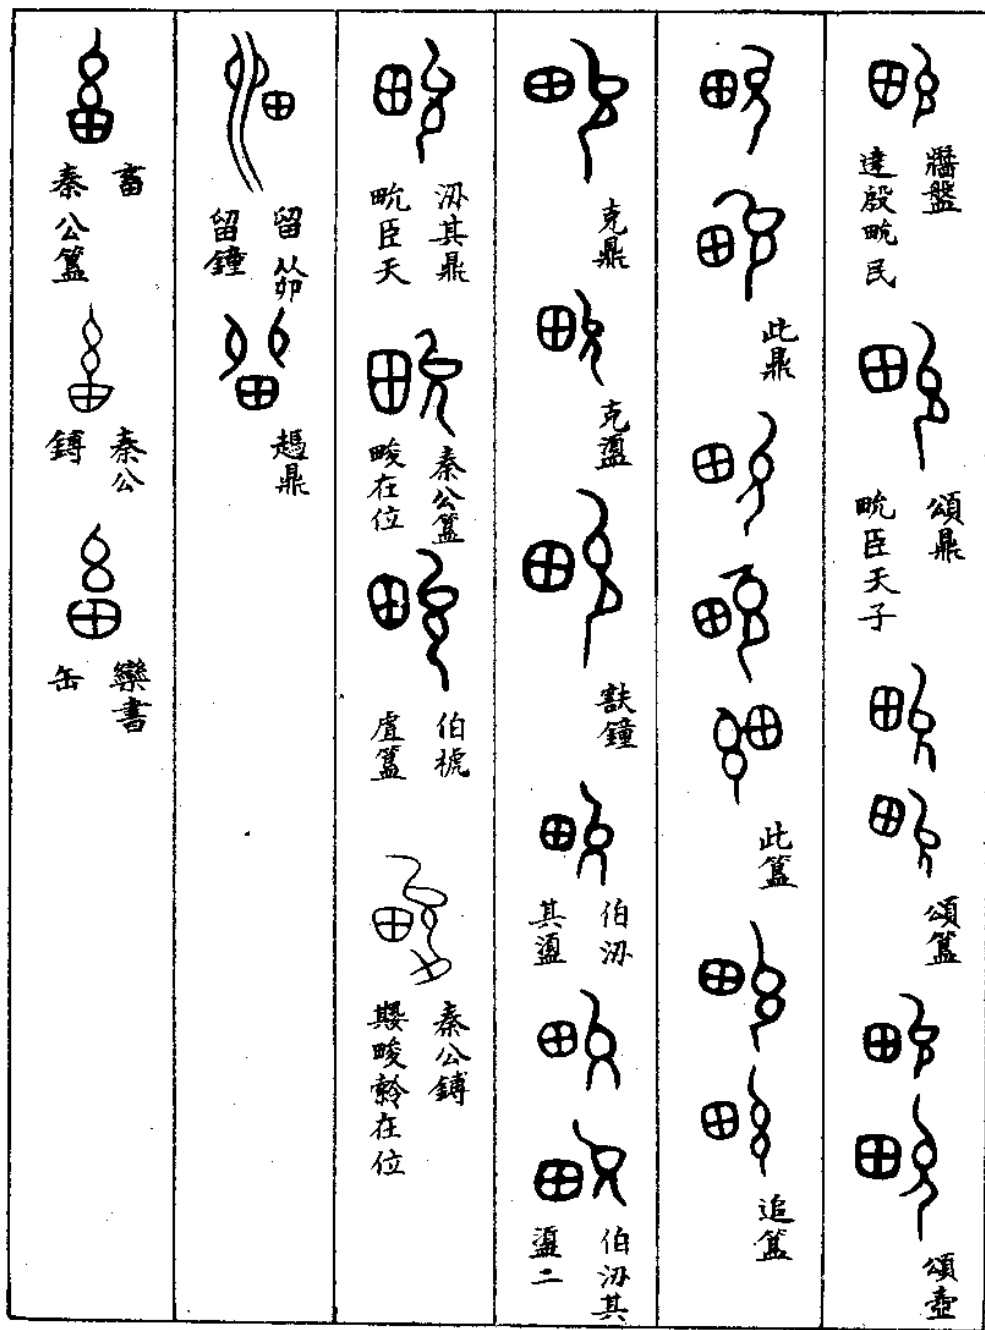 牆盤
達殷畯民
頌鼎
畯臣天子
頌簋
頌壺
此鼎
此簋
追簋
克鼎
克盨
㝬鐘
伯汈
其盨
伯汈其
盨二
汈其鼎
畯臣天
秦公簋
畯在位
伯㯉
虘簋
秦公鎛
畯在位
留 从丣
留鐘
趞鼎
畜
秦公簋
秦公
鎛
欒書
缶